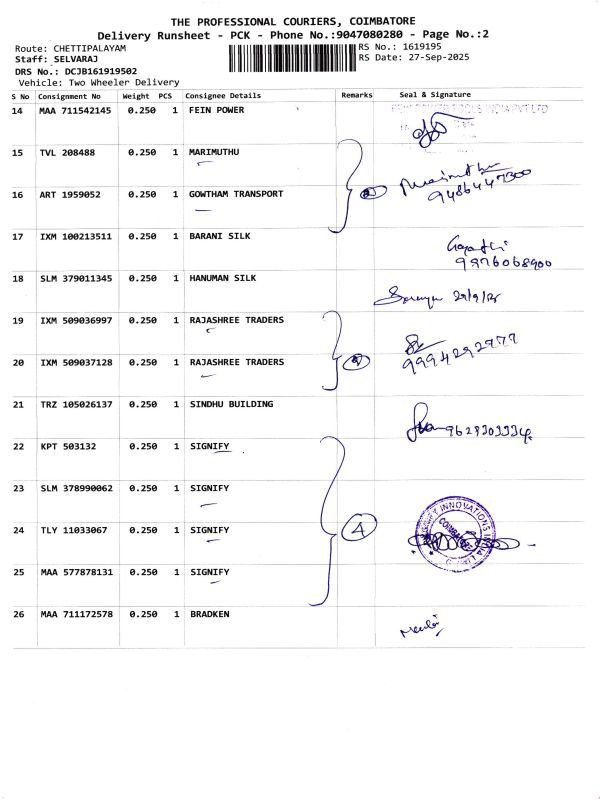 THE PROFESSIONAL COURIERS, COIMBATORE
Delivery Runsheet - PCK - Phone No.:9047080280 - Page No.:2
Route: CHETTIPALAYAM
Staff: SELVARAJ
DRS No.: DCJB161919502
Vehicle: Two Wheeler Delivery
RS No.: 1619195
RS Date: 27-Sep-2025
S No Consignment No Weight PCS Consignee Details Remarks Seal & Signature
14 MAA 711542145 0.250 1 FEIN POWER
15 TVL 208488 0.250 1 MARIMUTHU
Marimuthu
9486447300
16 ART 1959052 0.250 1 GOWTHAM TRANSPORT
17 IXM 100213511 0.250 1 BARANI SILK
Gayathri
9976068900
18 SLM 379011345 0.250 1 HANUMAN SILK
19 IXM 509036997 0.250 1 RAJASHREE TRADERS
9994292977
20 IXM 509037128 0.250 1 RAJASHREE TRADERS
21 TRZ 105026137 0.250 1 SINDHU BUILDING
22 KPT 503132 0.250 1 SIGNIFY
23 SLM 378990062 0.250 1 SIGNIFY
24 TLY 11033067 0.250 1 SIGNIFY
4
25 MAA 577878131 0.250 1 SIGNIFY
26 MAA 711172578 0.250 1 BRADKEN